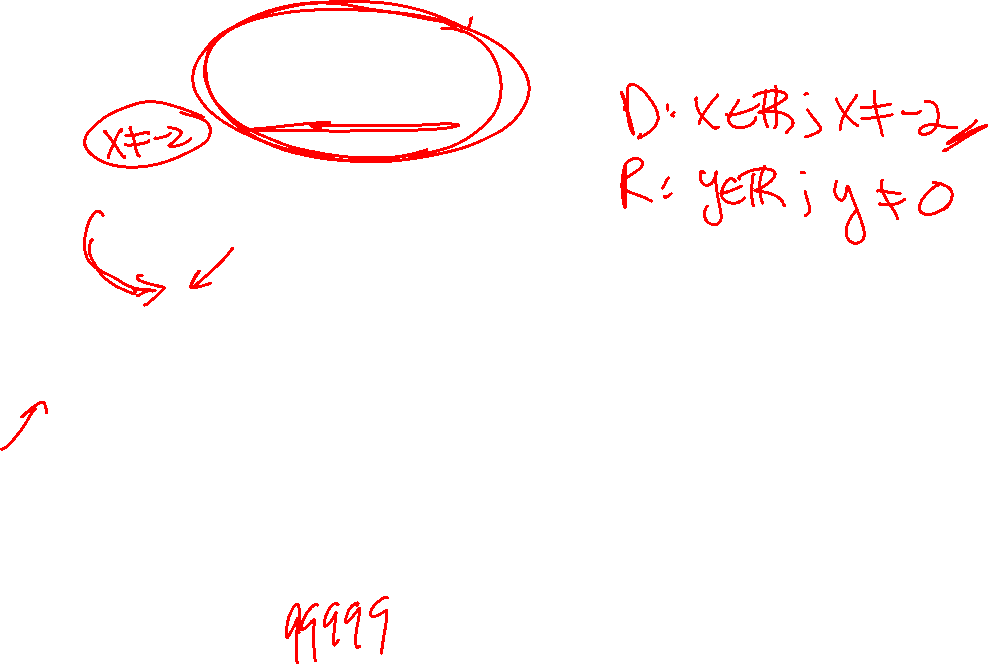 x≠-2
D: x∈ℝ; x≠-2
R: y∈ℝ; y≠0
99999